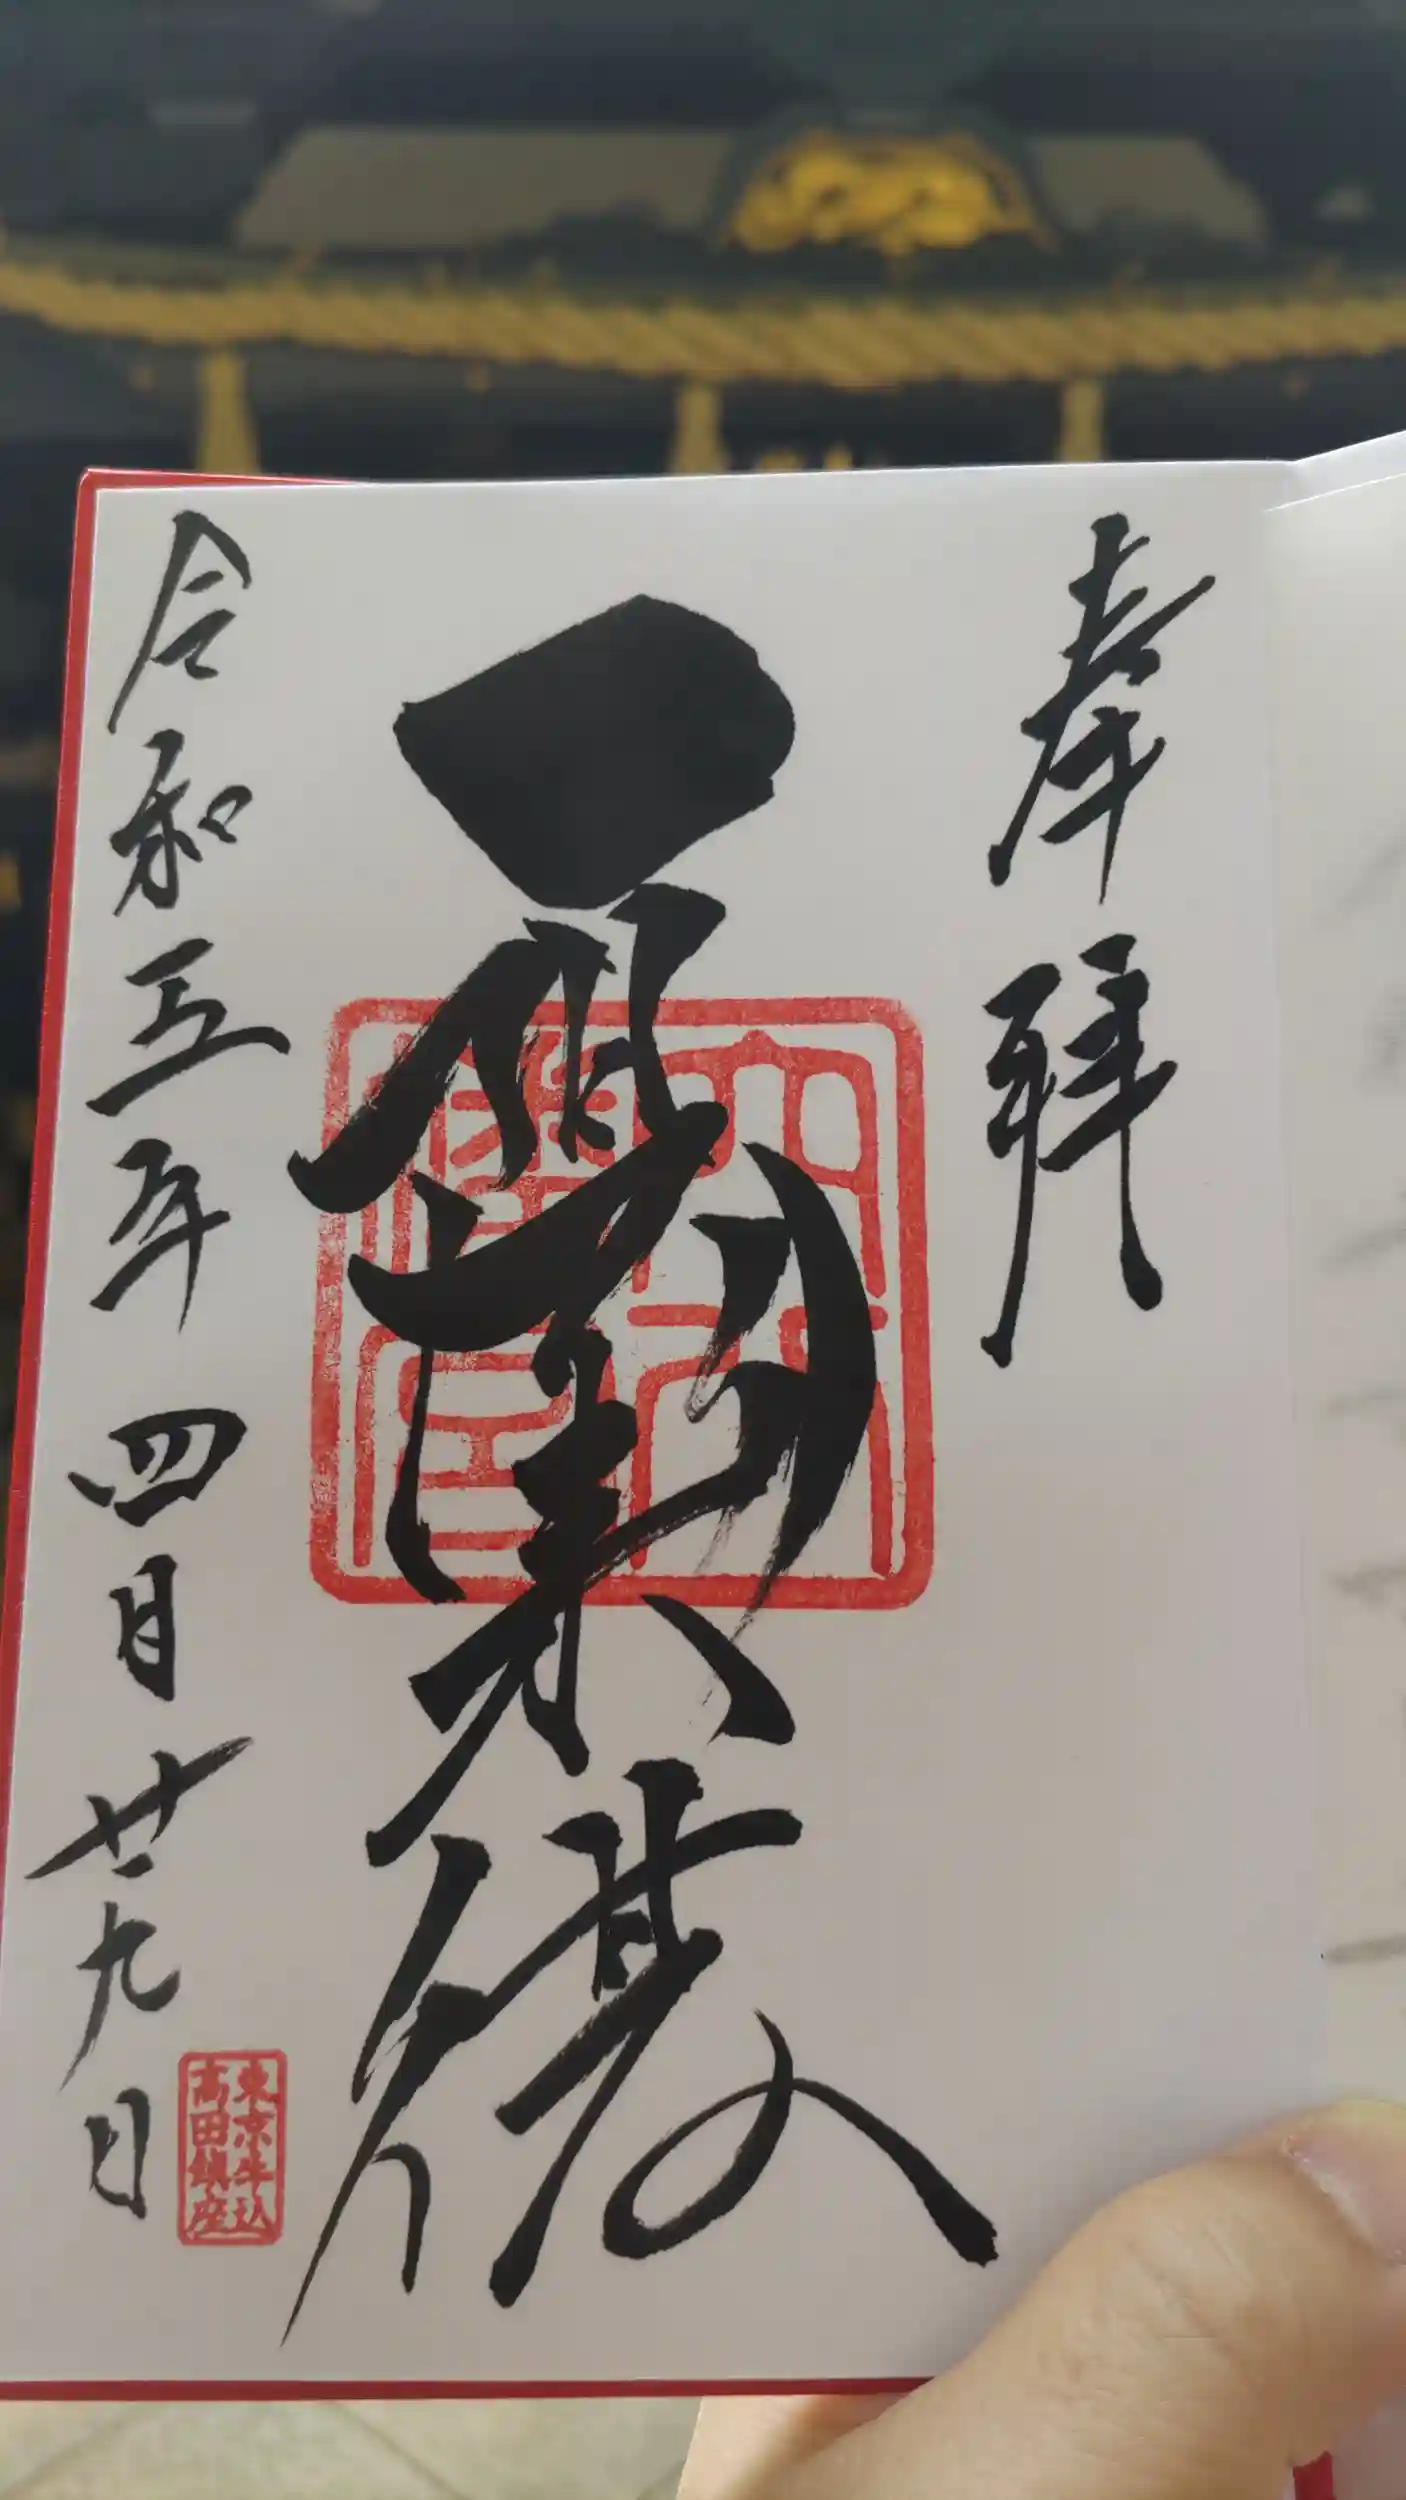 奉拝
一陽来復
穴八
幡宮
令和五年四月廿九日
東京牛込
高田鎮座